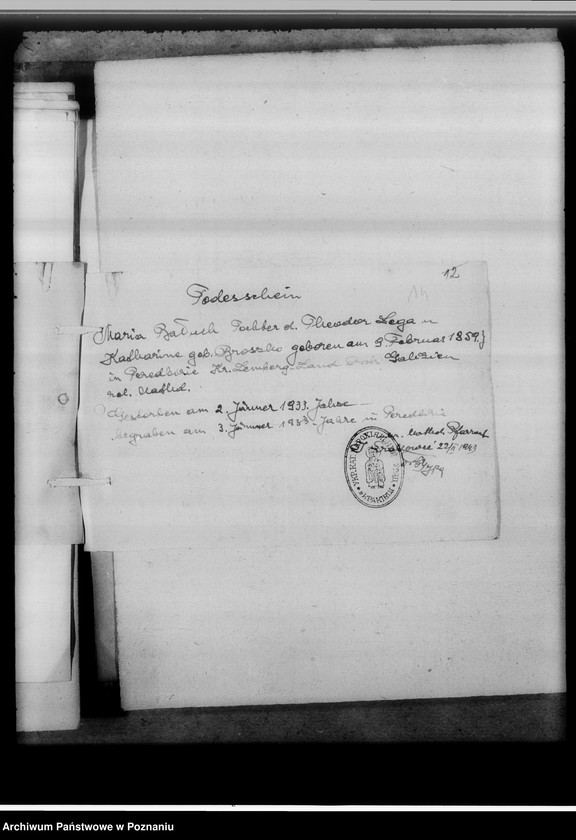 12
14
Todesschein
Maria Batuch Tochter d. Theodor Lega u
Katharine geb. Broszko geboren am 9. Februar 1859 J
in Peredbirie Kr. Lemberg. Land Galizien
rel. kathol.
Gestorben am 2. Jänner 1933. Jahre
begraben am 3. Jänner 1933. Jahre in Peredbirie
kathol. Pfarramt
22/II 1941
Archiwum Państwowe w Poznaniu